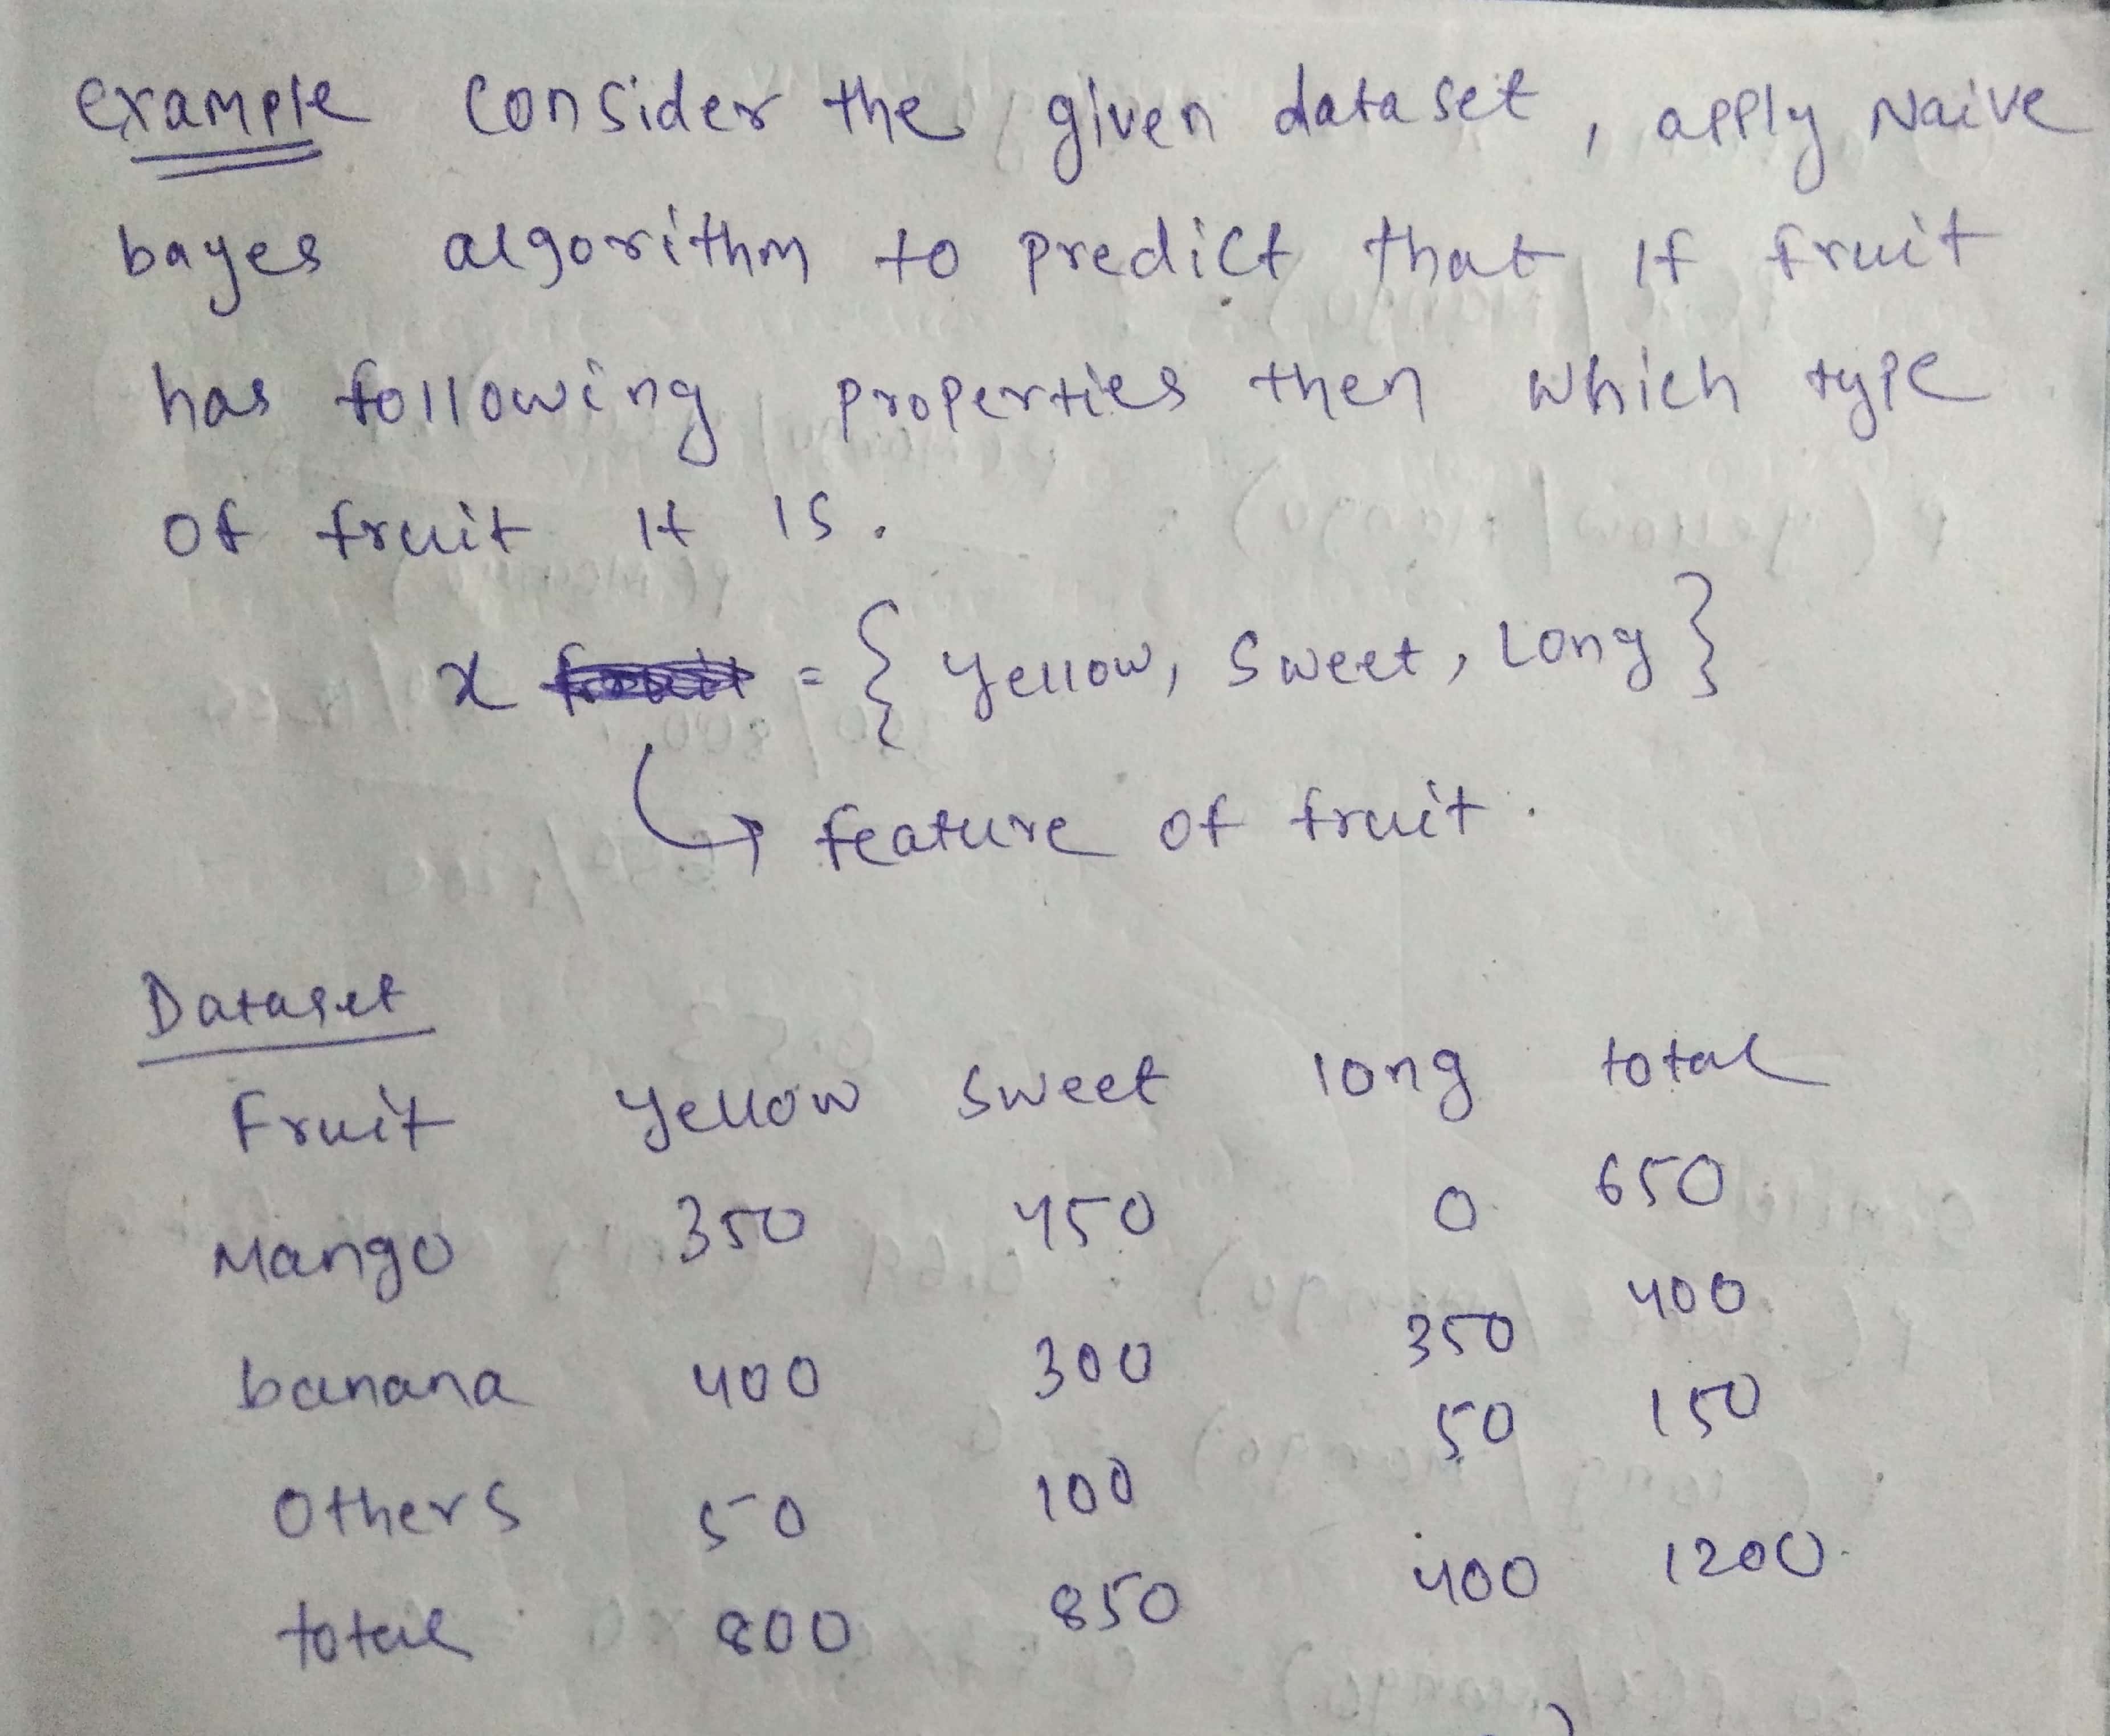 Example Consider the given dataset, apply Naive
bayes algorithm to predict that if fruit
has following properties then which type
of fruit it is.
x = { yellow, Sweet, Long }
feature of fruit.
Dataset
Fruit yellow Sweet long total
Mango 350 450 0 650
banana 400 300 350 400
Others 50 100 50 150
total 800 850 400 1200